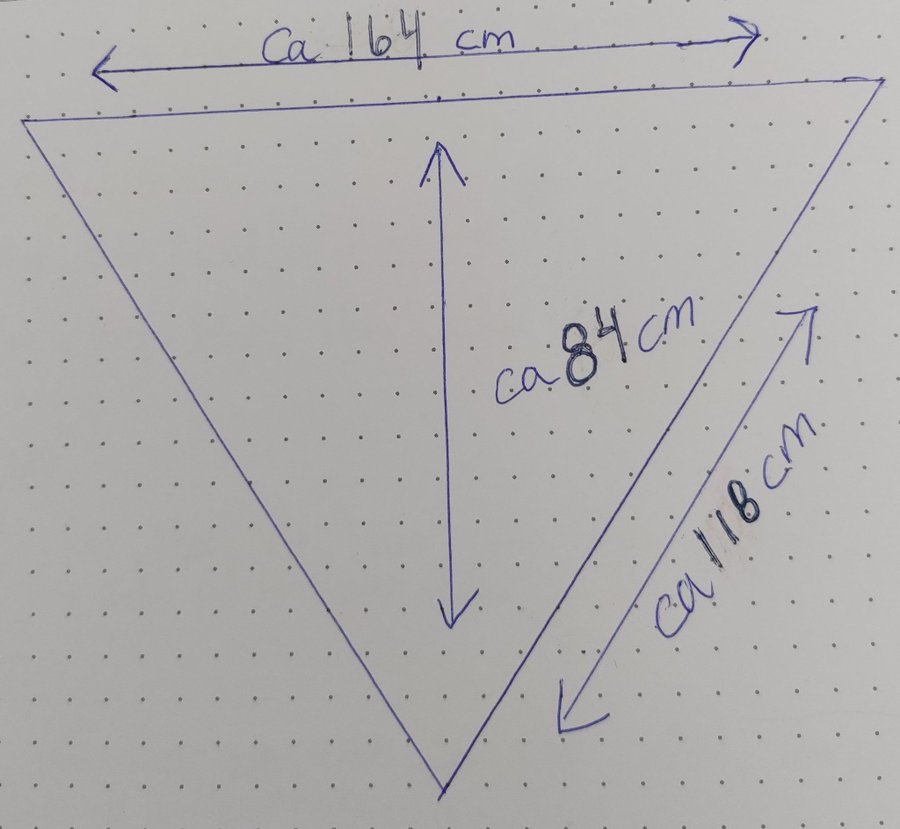 Ca 164 cm
ca 84 cm
ca 118 cm